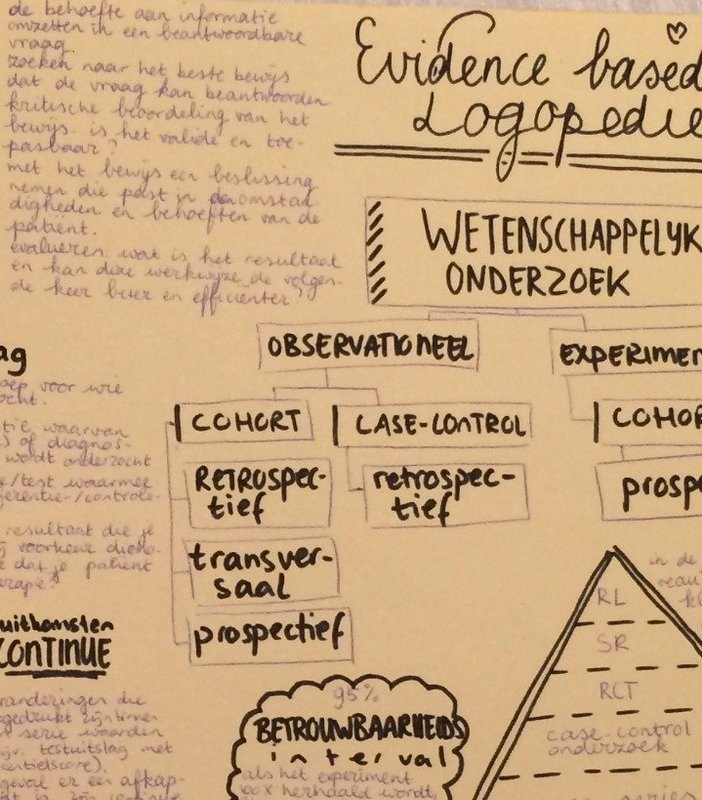 de behoefte aan informatie
omzetten in een beantwoordbare
vraag.
zoeken naar het beste bewijs
dat de vraag kan beantwoorden
kritische beoordeling van het
bewijs. is het valide en toe-
pasbaar?
met het bewijs een beslissing
nemen die past in de omstan
digheden en behoeften van de
patiënt.
evalueren. wat is het resultaat
en kan deze werkwijze de volgen-
de keer beter en efficiënter?
Evidence based
Logopedie
WETENSCHAPPELYK
ONDERZOEK
OBSERVATIONEEL
EXPERIMEN
COHORT
CASE-CONTROL
COHOR
RETROSPEC-
tief
retrospec-
tief
prospe
transver-
saal
prospectief
ag
oep voor wie
ocht.
tie waarvan
s of diagnos-
wordt onderzocht
/test waarmee
ferentie-/controle-
resultaat die je
voorkeur
dat je patiënt
erapie?
uitkomsten
CONTINUE
randeringen die
gedrukt zijn
serie waarden
testuitslag met
entielscore).
geval er een afkap-
in de
RL
SR
RCT
case-control
onderzoek
series
95%
BETROUWBAARHEIDS
interval
als het experiment
100x herhaald wordt,